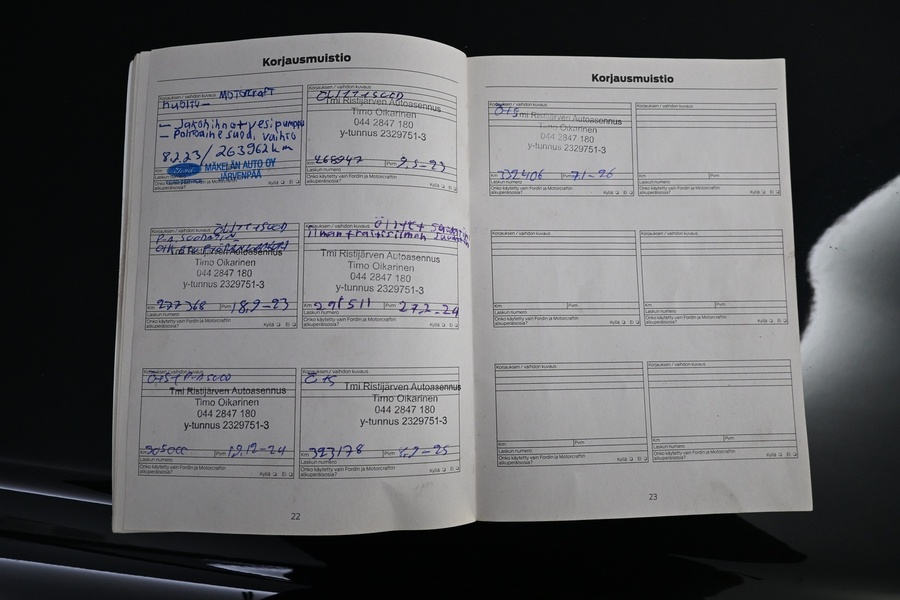 Korjausmuistio
Korjauksen / vaihdon kuvaus
Huolto - Motorcraft
- Jakohihna + vesipumppu
- Polttoainesuod. vaihto
8.2.23 / 263962 km
Km
Ford
MÄKELÄN AUTO OY
JÄRVENPÄÄ
Laskun numero
Onko käytetty vain Fordin ja Motorcraftin
alkuperäisosia? Kyllä Ei
Korjauksen / vaihdon kuvaus
Tmi Ristijärven Autoasennus
Timo Oikarinen
044 2847 180
y-tunnus 2329751-3
Km 268947 Pvm 9.5-23
Laskun numero
Onko käytetty vain Fordin ja Motorcraftin
alkuperäisosia? Kyllä Ei
Korjauksen / vaihdon kuvaus
Tmi Ristijärven Autoasennus
Timo Oikarinen
044 2847 180
y-tunnus 2329751-3
Km 277368 Pvm 18.9-23
Laskun numero
Onko käytetty vain Fordin ja Motorcraftin
alkuperäisosia? Kyllä Ei
Korjauksen / vaihdon kuvaus
Tmi Ristijärven Autoasennus
Timo Oikarinen
044 2847 180
y-tunnus 2329751-3
Km 291511 Pvm 27.2-24
Laskun numero
Onko käytetty vain Fordin ja Motorcraftin
alkuperäisosia? Kyllä Ei
Korjauksen / vaihdon kuvaus
Ö+S+P-ASUOD
Tmi Ristijärven Autoasennus
Timo Oikarinen
044 2847 180
y-tunnus 2329751-3
Km 305000 Pvm 19.12-24
Laskun numero
Onko käytetty vain Fordin ja Motorcraftin
alkuperäisosia? Kyllä Ei
Korjauksen / vaihdon kuvaus
Ö+S
Tmi Ristijärven Autoasennus
Timo Oikarinen
044 2847 180
y-tunnus 2329751-3
Km 323178 Pvm
Laskun numero
Onko käytetty vain Fordin ja Motorcraftin
alkuperäisosia? Kyllä Ei
22
Korjausmuistio
Korjauksen / vaihdon kuvaus
Ö+S
Tmi Ristijärven Autoasennus
Timo Oikarinen
044 2847 180
y-tunnus 2329751-3
Km 332406 Pvm 7.1-26
Laskun numero
Onko käytetty vain Fordin ja Motorcraftin
alkuperäisosia? Kyllä Ei
Korjauksen / vaihdon kuvaus
Km Pvm
Laskun numero
Onko käytetty vain Fordin ja Motorcraftin
alkuperäisosia? Kyllä Ei
Korjauksen / vaihdon kuvaus
Km Pvm
Laskun numero
Onko käytetty vain Fordin ja Motorcraftin
alkuperäisosia? Kyllä Ei
Korjauksen / vaihdon kuvaus
Km Pvm
Laskun numero
Onko käytetty vain Fordin ja Motorcraftin
alkuperäisosia? Kyllä Ei
Korjauksen / vaihdon kuvaus
Km Pvm
Laskun numero
Onko käytetty vain Fordin ja Motorcraftin
alkuperäisosia? Kyllä Ei
Korjauksen / vaihdon kuvaus
Km Pvm
Laskun numero
Onko käytetty vain Fordin ja Motorcraftin
alkuperäisosia? Kyllä Ei
23